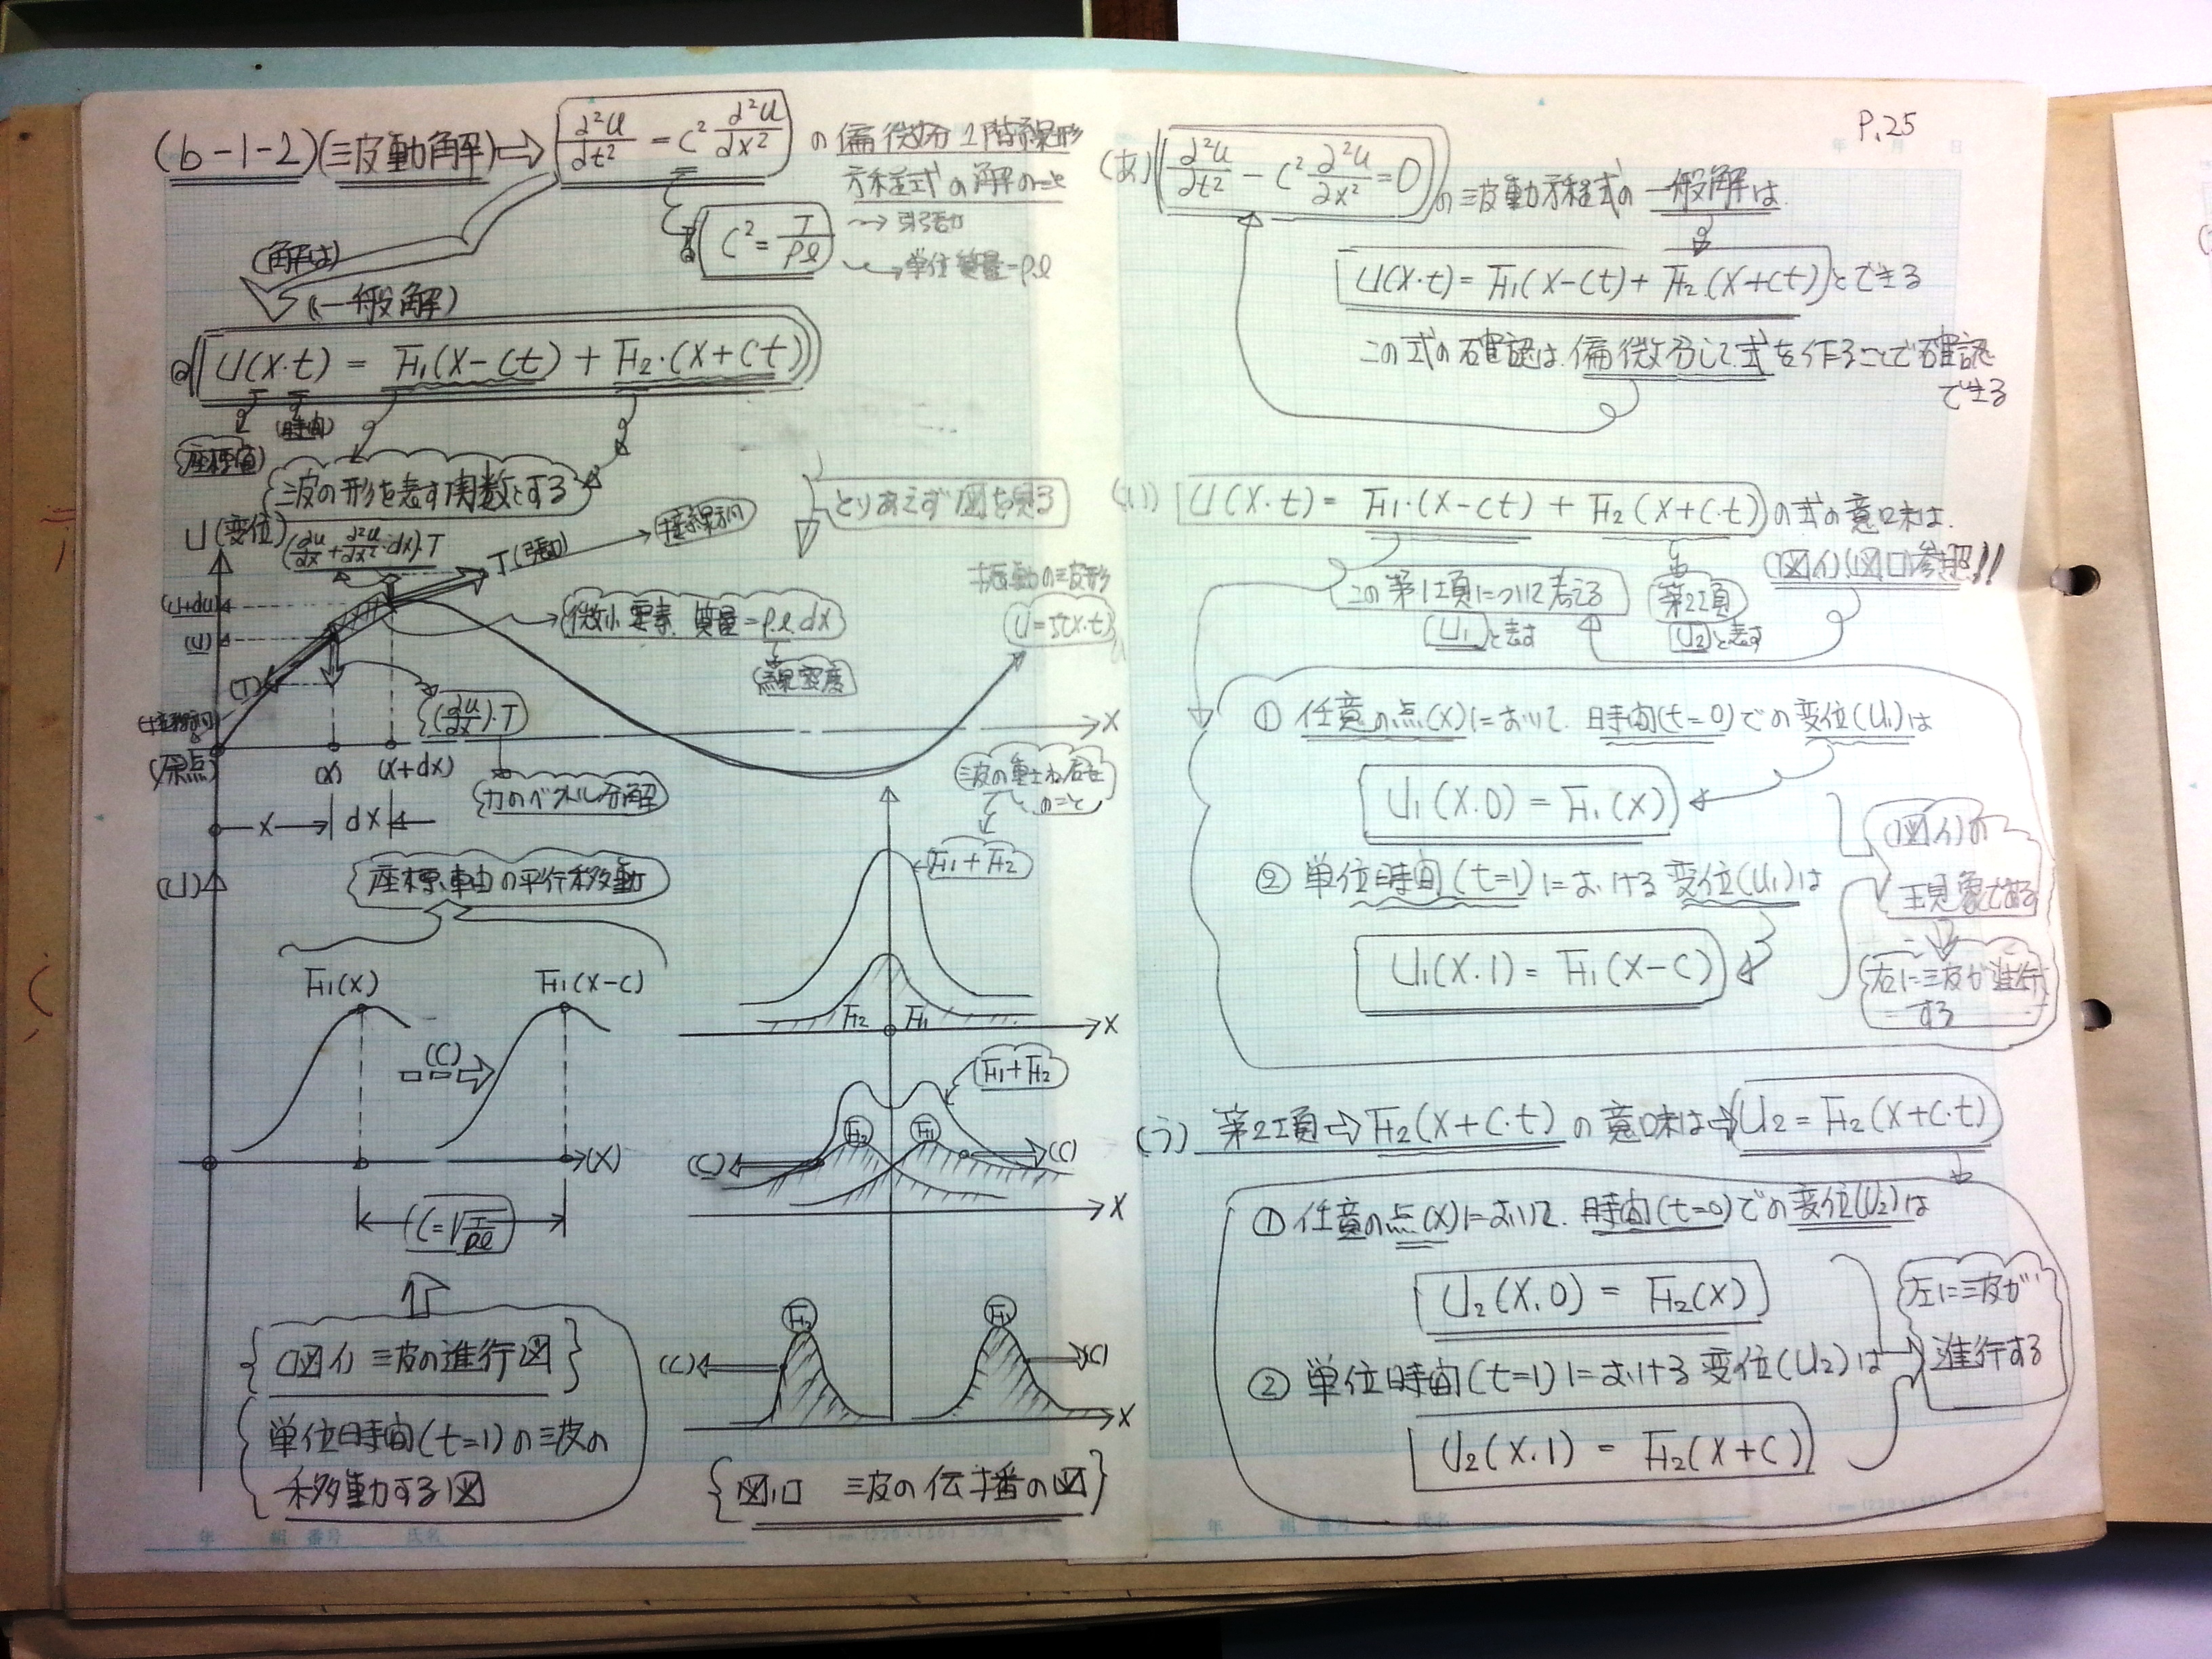 (b-1-2)(波動解)⇒ d²u/dt² = c² d²u/dx² の偏微分2階線形
方程式の解のこと
C² = T/ρℓ
→ 引張力
→ 単位質量=ρ.ℓ
(解は)
(一般解)
U(x·t) = F₁(x-ct) + F₂·(x+ct)
座標値
(時間)
波の形を表す関数とする
とりあえず図を見る
U(変位)
(du/dx + d²u/dx²·dx)·T
T(張力)
接線方向
振動の波形
U=f(x·t)
微小要素 質量=ρ.ℓ.dx
線密度
(U+du)
(U)
(T)
(du/dx)·T
力のベクトル分解
(原点)
(x)
(x+dx)
X
x
dx
波の重ね合せ
のこと
座標軸の平行移動
(U)
F₁(x)
F₁(x-c)
(C)
(X)
C=√T/ρℓ
{(図イ) 波の進行図}
単位時間(t=1)の波の
移動する図
F₁+F₂
F₂
F₁
X
F₁+F₂
F₂
F₁
(C)
(C)
X
F₂
F₁
(C)
(C)
X
{図.ロ 波の伝播の図}
P.25
(あ) ∂²u/∂t² - c² ∂²u/∂x² = 0 の波動方程式の一般解は.
U(x·t) = F₁(x-ct) + F₂.(x+ct) とできる
この式の確認は.偏微分して式を作ることで確認
できる
(い) U(x·t) = F₁·(x-ct) + F₂(x+c·t) の式の意味は.
(図イ)(図ロ)参照!!
この第1項について考える
U₁と表す
第2項
U₂と表す
① 任意の点(x)において. 時間(t=0)での変位(U₁)は
U₁(x.0) = F₁(x)
② 単位時間(t=1)における変位(U₁)は
U₁(x.1) = F₁(x-c)
(図イ)の
現象である
右に波が進行
する
(う) 第2項⇒F₂(x+c·t)の意味は⇒U₂ = F₂(x+c·t)
① 任意の点(x)において. 時間(t=0)での変位(U₂)は
U₂(x.0) = F₂(x)
② 単位時間(t=1)における変位(U₂)は
U₂(x.1) = F₂(x+c)
左に波が
進行する
年 組 番号 氏名
年 組 番号 氏名